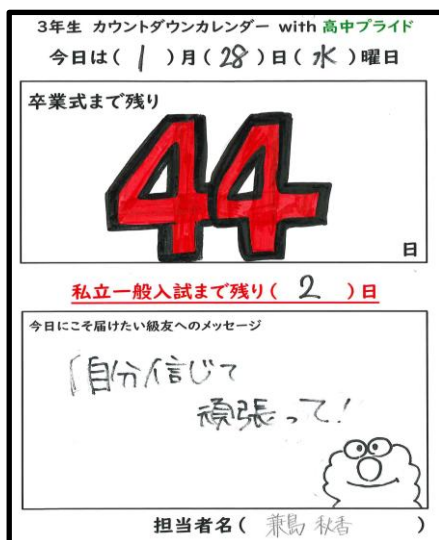 3年生 カウントダウンカレンダー with 高中プライド
今日は( 1 )月( 28 )日( 水 )曜日
卒業式まで残り
44
日
私立一般入試まで残り( 2 )日
今日にこそ届けたい級友へのメッセージ
自分信じて
頑張って!
担当者名( 兼島 秋香 )